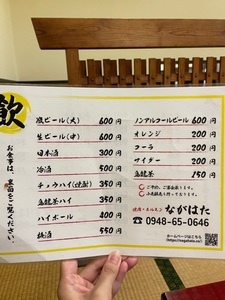 飲
お食事は、裏面をご覧ください。
瓶ビール(大) 600円
生ビール(中) 600円
日本酒 300円
冷酒 500円
チュウハイ(焼酎) 350円
烏龍茶ハイ 350円
ハイボール 400円
梅酒 550円
ノンアルコールビール 600円
オレンジ 200円
コーラ 200円
サイダー 200円
烏龍茶 150円
ご予約、ご宴会承ります。
焼肉・ホルモン ながはた
0948-65-0646
ホームページはこちら